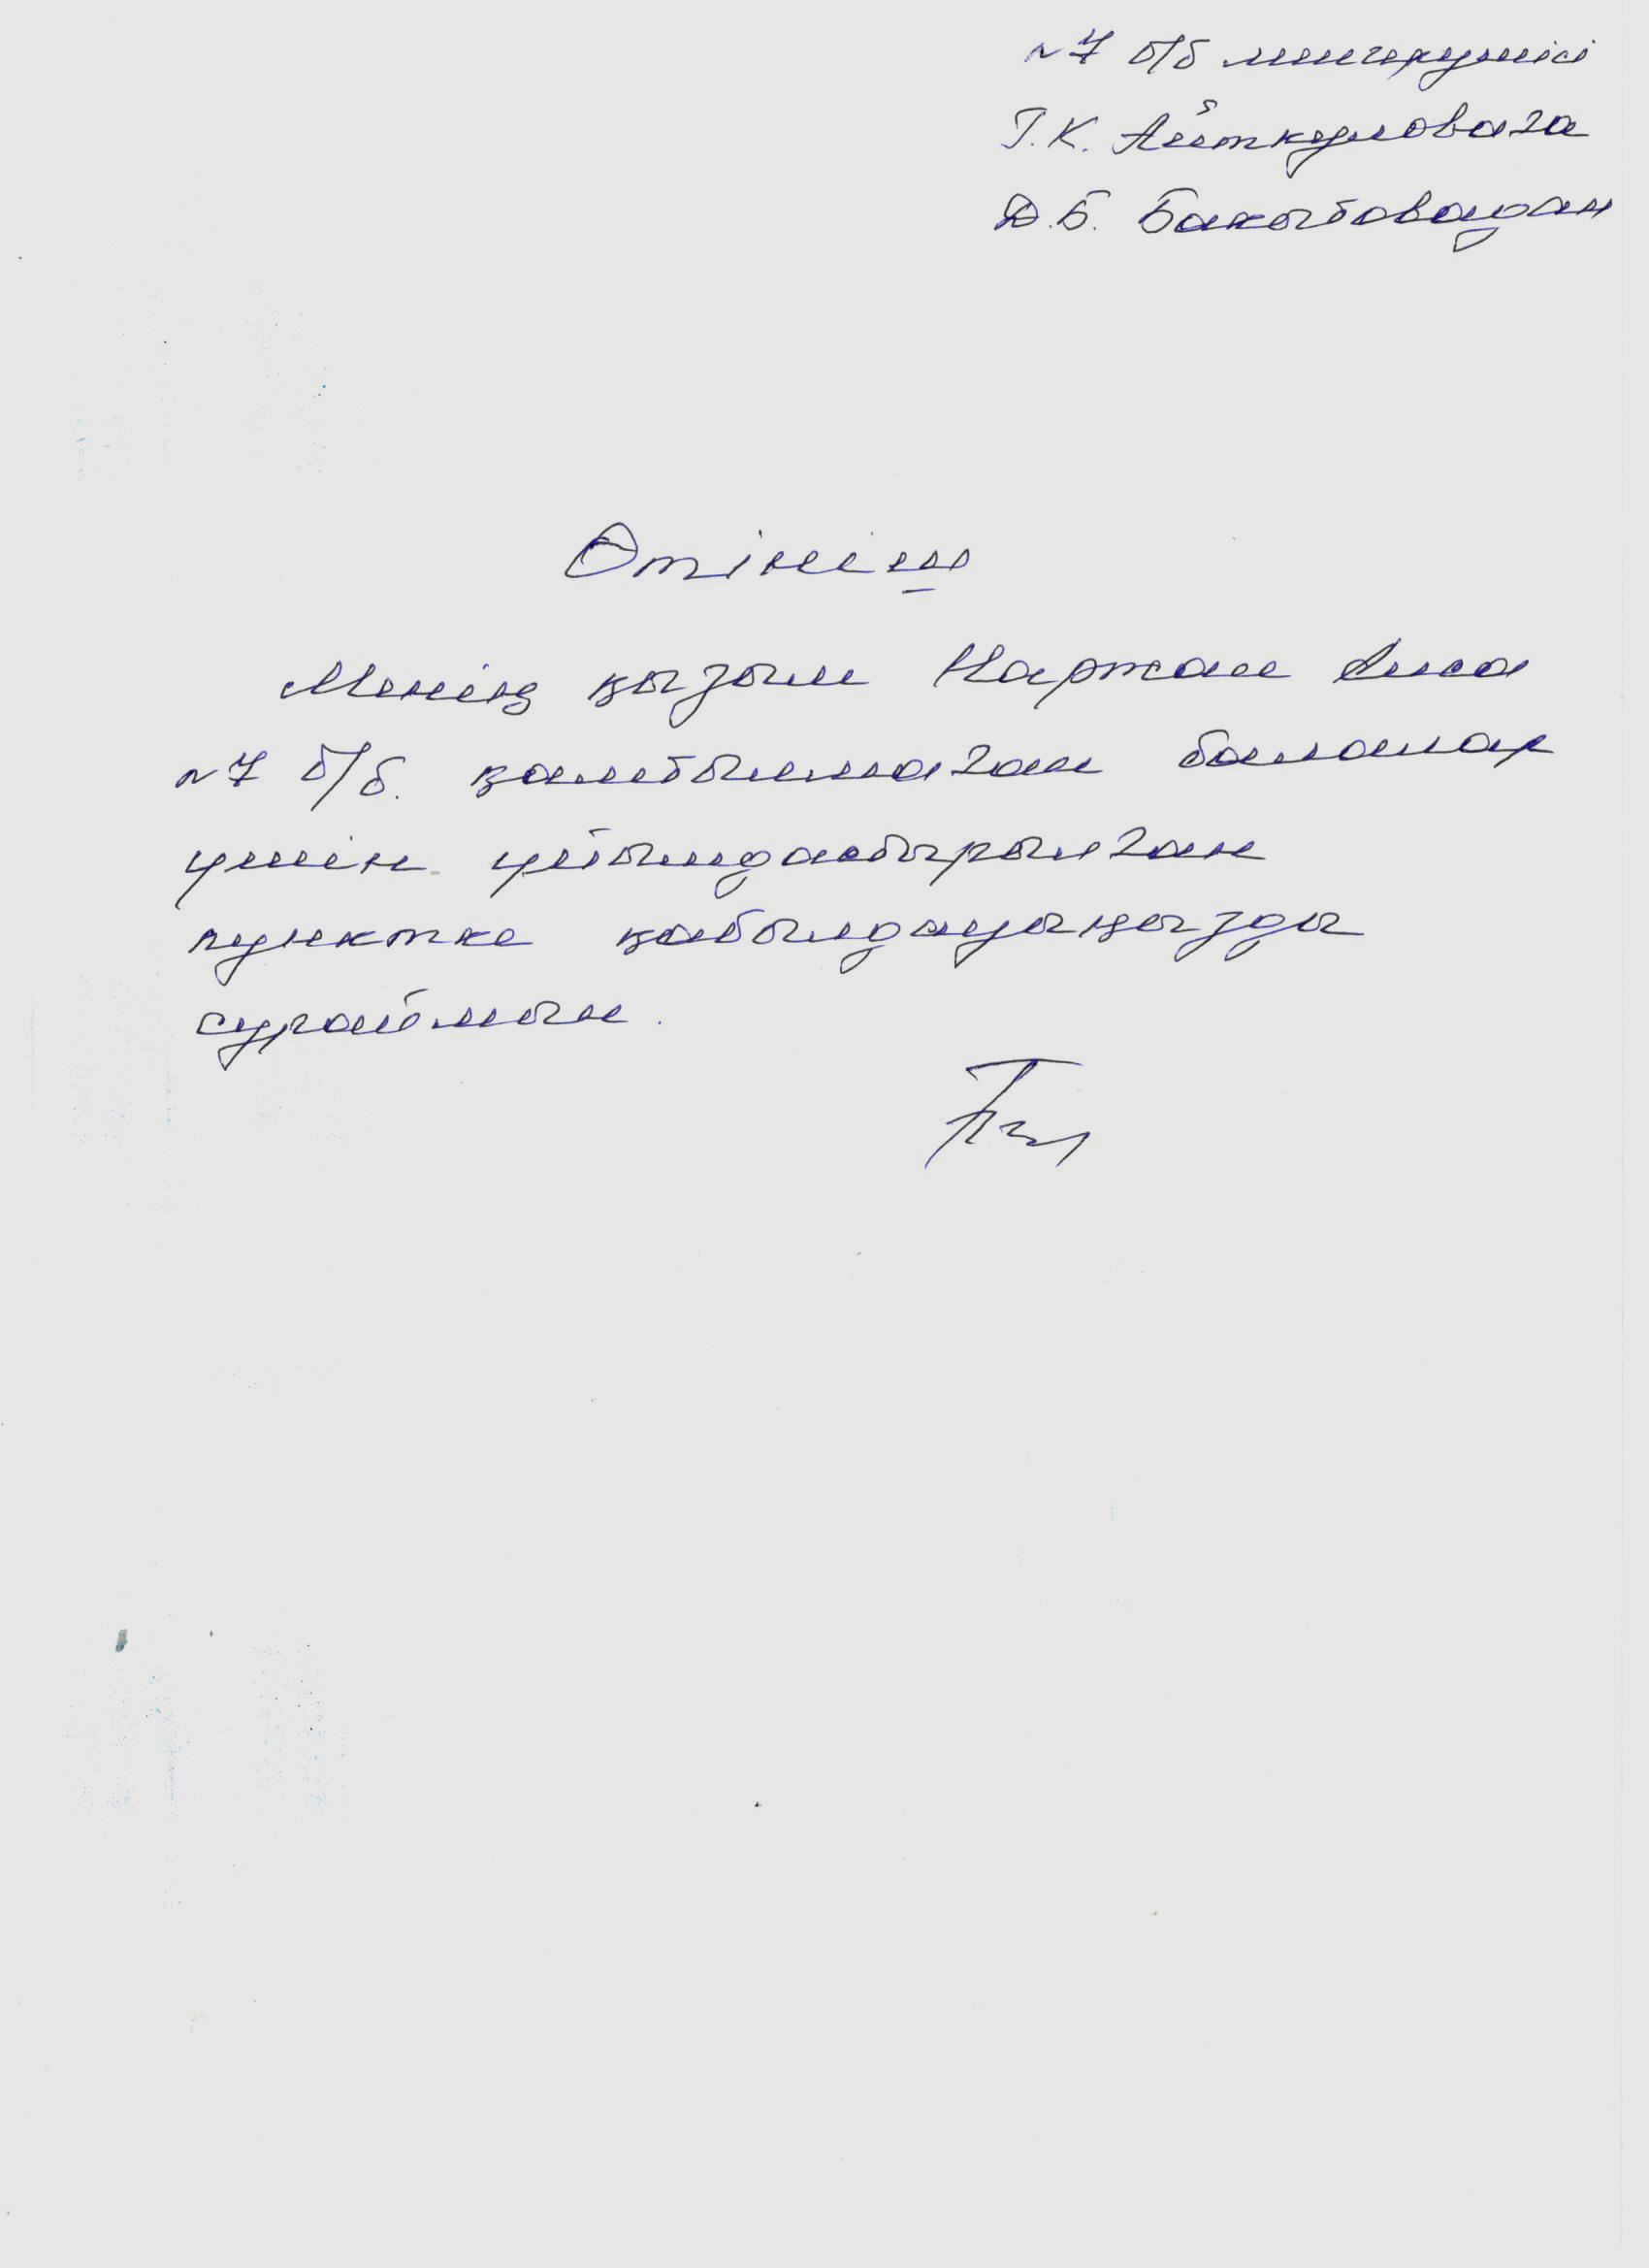 №7 б/б меңгерушісі
Г.К. Айткуловаға
Д.Б. Бакытовадан
Өтініш
Менің қызым Нартай Аиса
№7 б/б. қамтылмаған балалар
үшін ұйымдастырылған
пунктке қабылдауыңызды
сұраймын.